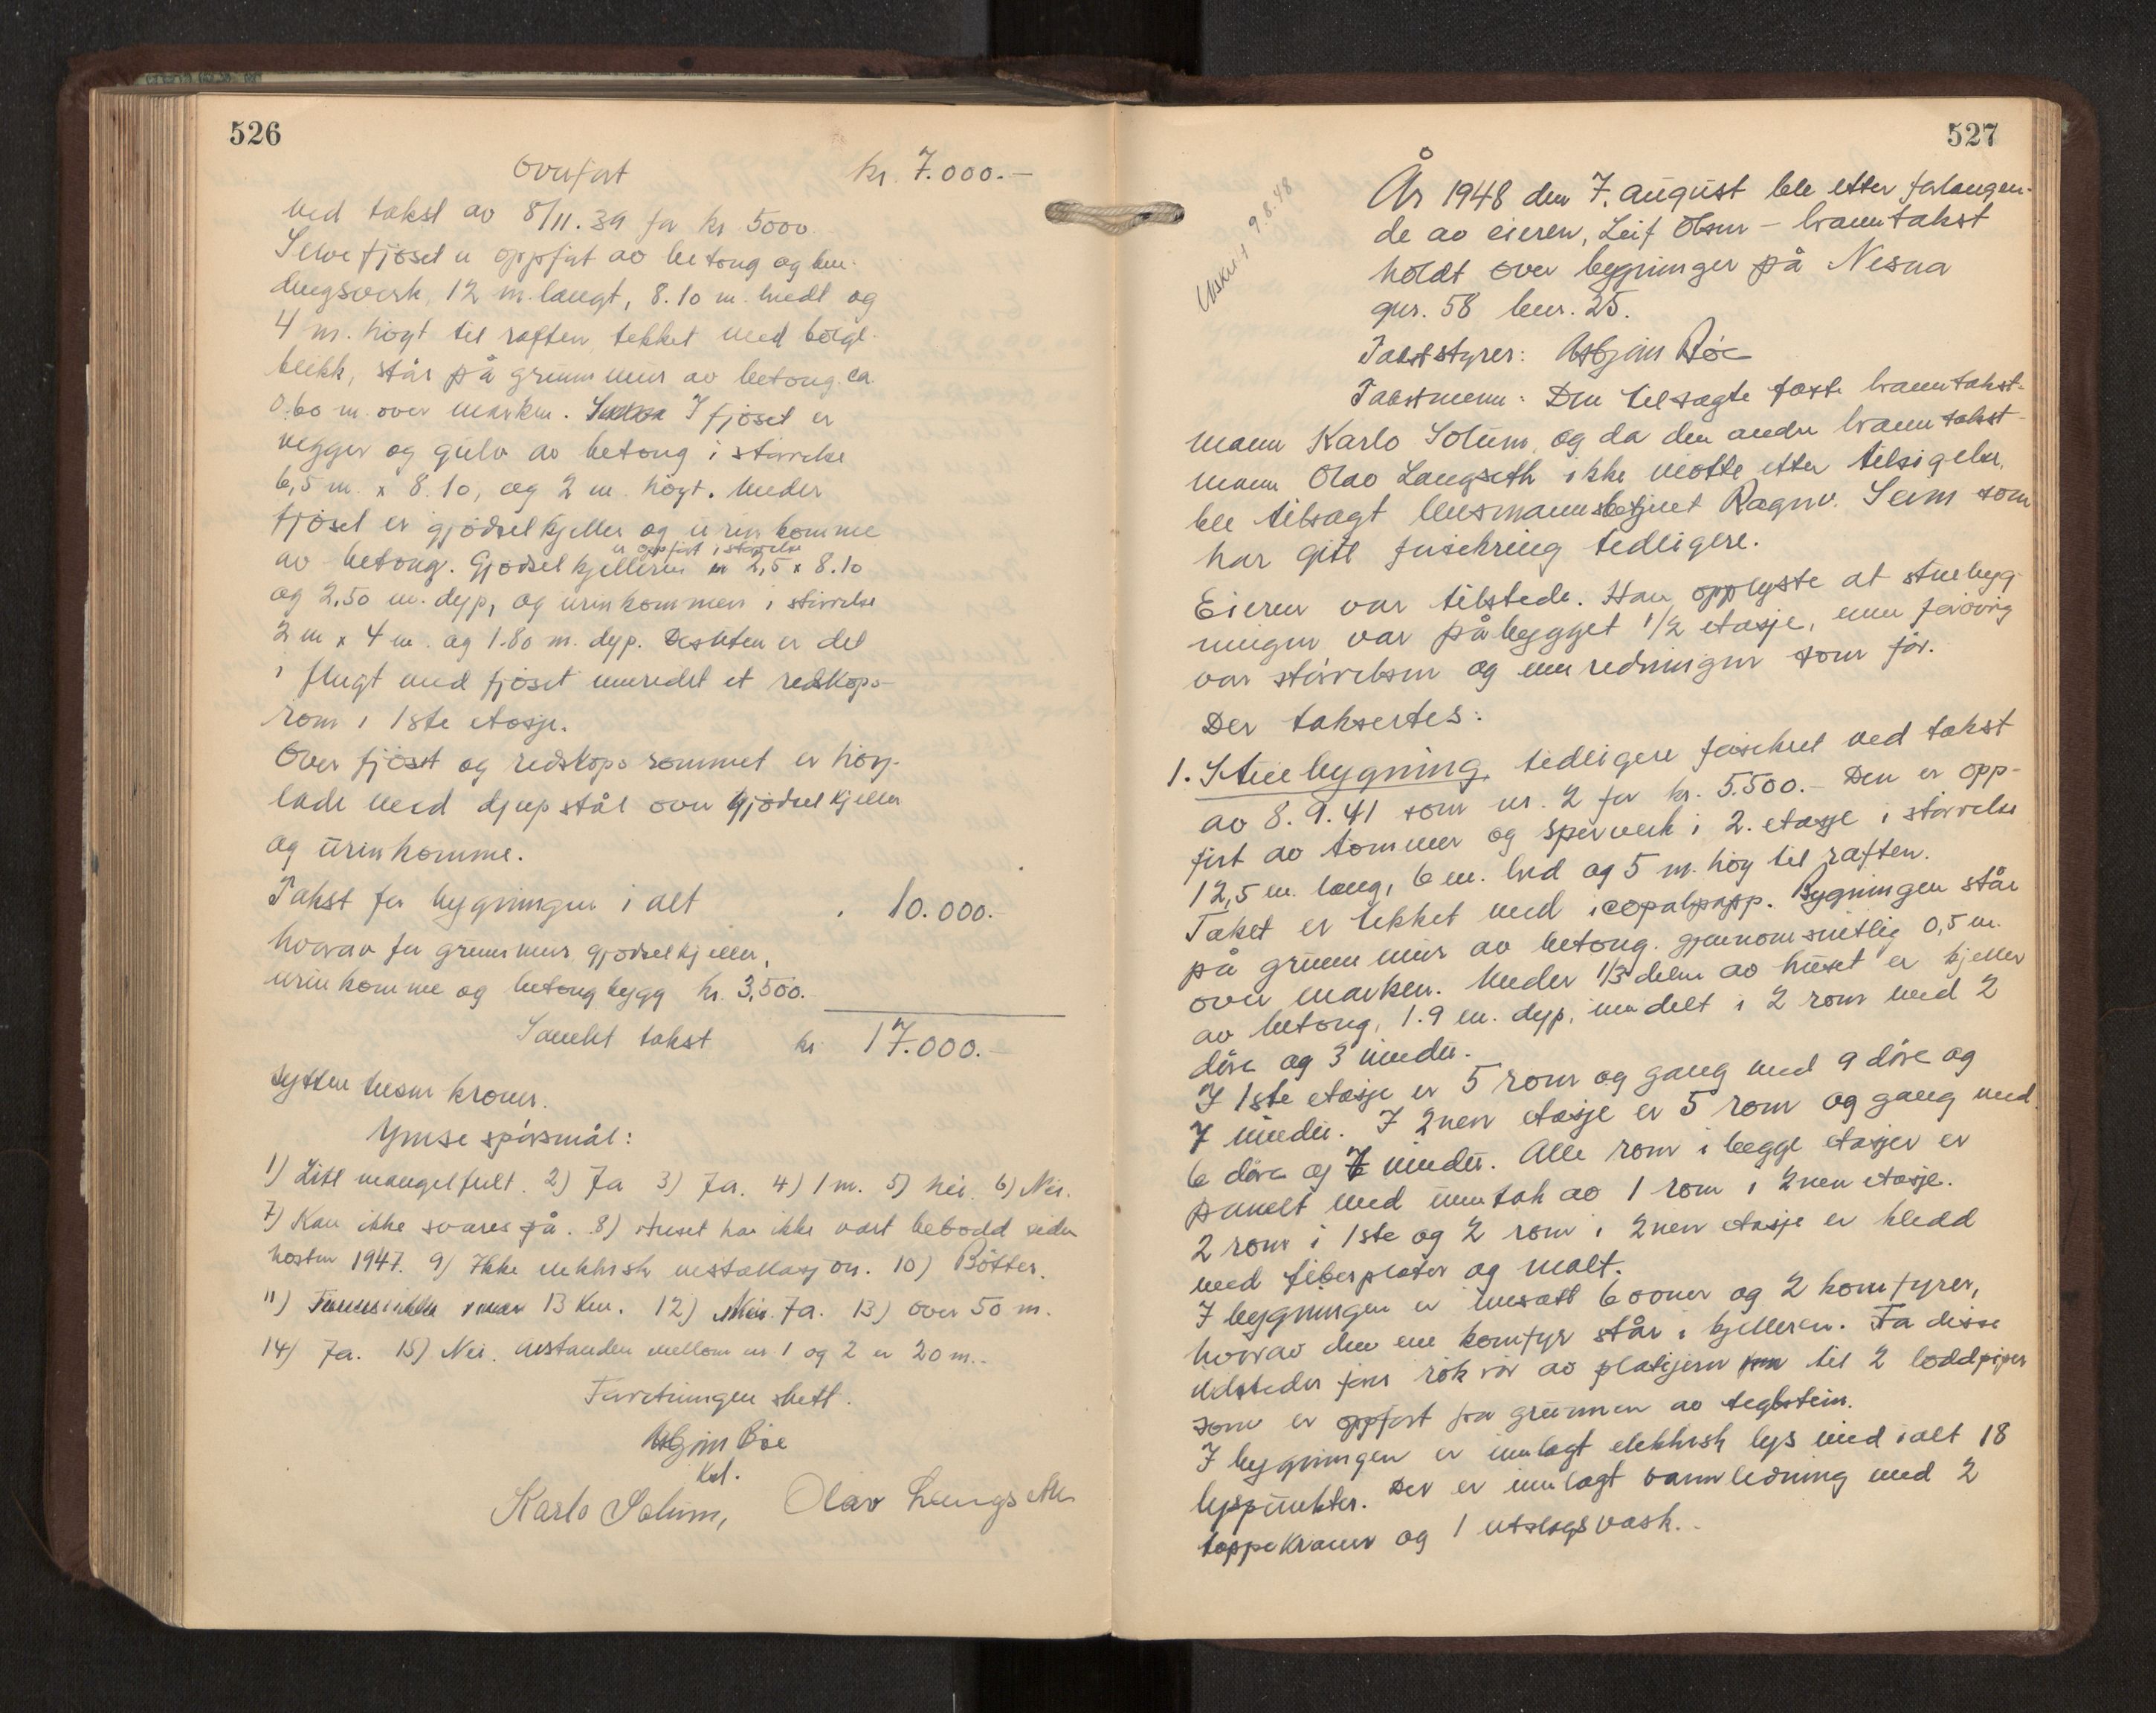 526
Overført kr. 7.000.-
ved takst av 8/11.39 for kr 5000
Selve fjøset er oppført av betong og bin-
dingsverk, 12 m. langt, 8.10 m. bredt og
4 m. høgt til raften, tekket med bølge-
blikk, står på grunnmur av betong ca.
0.60 m. over marken. I fjøset er
vegger og gulv av betong i størrelse
6,5 m. x 8.10, og 2 m. høgt. Under
fjøset er gjødselkjeller og urinkomme
er oppført i størrelse
av betong. Gjødselkjelleren 2,5 x 8.10
og 2,50 m. dyp, og urinkommen i størrelse
2 m x 4 m. og 1.80 m. dyp. Desuten er det
i flugt med fjøset innredet et redskaps-
rom i 1ste etasje.
Over fjøset og redskapsrommet er høy-
lade med djupstål over gjødselkjeller
og urinkomme.
Takst for bygningen i alt 10.000.-
hvorav for grunnmur, gjødselkjeller,
urinkomme og betongbygg kr. 3,500.-
Samlet takst kr 17.000.-
sytten tusen kroner.
Ymse spørsmål:
1) Litt mangelfult. 2) Ja 3) Ja. 4) 1 m. 5) Nei. 6) Nei.
7) Kan ikke svares på. 8) Huset har ikke vært bebodd siden
høsten 1947. 9) Ikke elektrisk installasjon. 10) Bøtter.
11) 13 km. 12) Ja. 13) Over 50 m.
14) Ja. 15) Nei. Avstanden mellom nr 1 og 2 er 20 m.-
Forretningen slutt.
Asbjørn Bøe
Kst.
Karlo Solum, Olav Langseth
527
Utskr. 9.8.48
År 1948 den 7. august ble etter forlangen-
de av eieren, Leif Olsen – branntakst
holdt over bygninger på Nesna
gnr. 58 bnr. 25.
Takststyrer: Asbjørn Bøe
Takstmenn: Den tilsagte faste branntakst-
mann Karlo Solum, og da den andre branntakst-
mann Olav Langseth ikke møtte etter tilsigelse,
ble tilsagt lensmannsbetjent Ragnv. Seim som
har gitt forsikring tidligere.
Eieren var tilstede. Han opplyste at stuebyg-
ningen var påbygget 1/2 etasje, men forøvrig
var størrelsen og innredningen som før.
Der taksertes:
1. Stuebygning, tidligere forsikret ved takst
av 8.9.41 som nr. 2 for kr. 5.500.- Den er opp-
ført av tømmer og sperverk i 2. etasje i størrelse
12,5 m. lang, 6 m. bred og 5 m. høg til raften.
Taket er tekket med icopalpapp. Bygningen står
på grunnmur av betong. gjennomsnitlig 0,5 m.
over marken. Under 1/3 delen av huset er kjeller
av betong, 1.9 m. dyp, inndelt i 2 rom med 2
døre og 3 vinduer.
I 1ste etasje er 5 rom og gang med 9 døre og
7 vinduer. I 2nen etasje er 5 rom og gang med
6 døre og 7 vinduer. Alle rom i begge etasjer er
panelt med unntak av 1 rom i 2nen etasje.
2 rom i 1ste og 2 rom i 2nen etasje er kledd
med fiberplater og malt.
I bygningen er innsatt 6 ovner og 2 komfyrer,
hvorav den ene komfyr står i kjelleren. Fra disse
ildsteder fører rökrør av platejern til 2 loddpiper
som er oppført fra grunnen av teglstein.
I bygningen er innlagt elektrisk lys med ialt 18
lyspunkter. Der er innlagt vannledning med 2
tappekraner og 1 utslagsvask.-